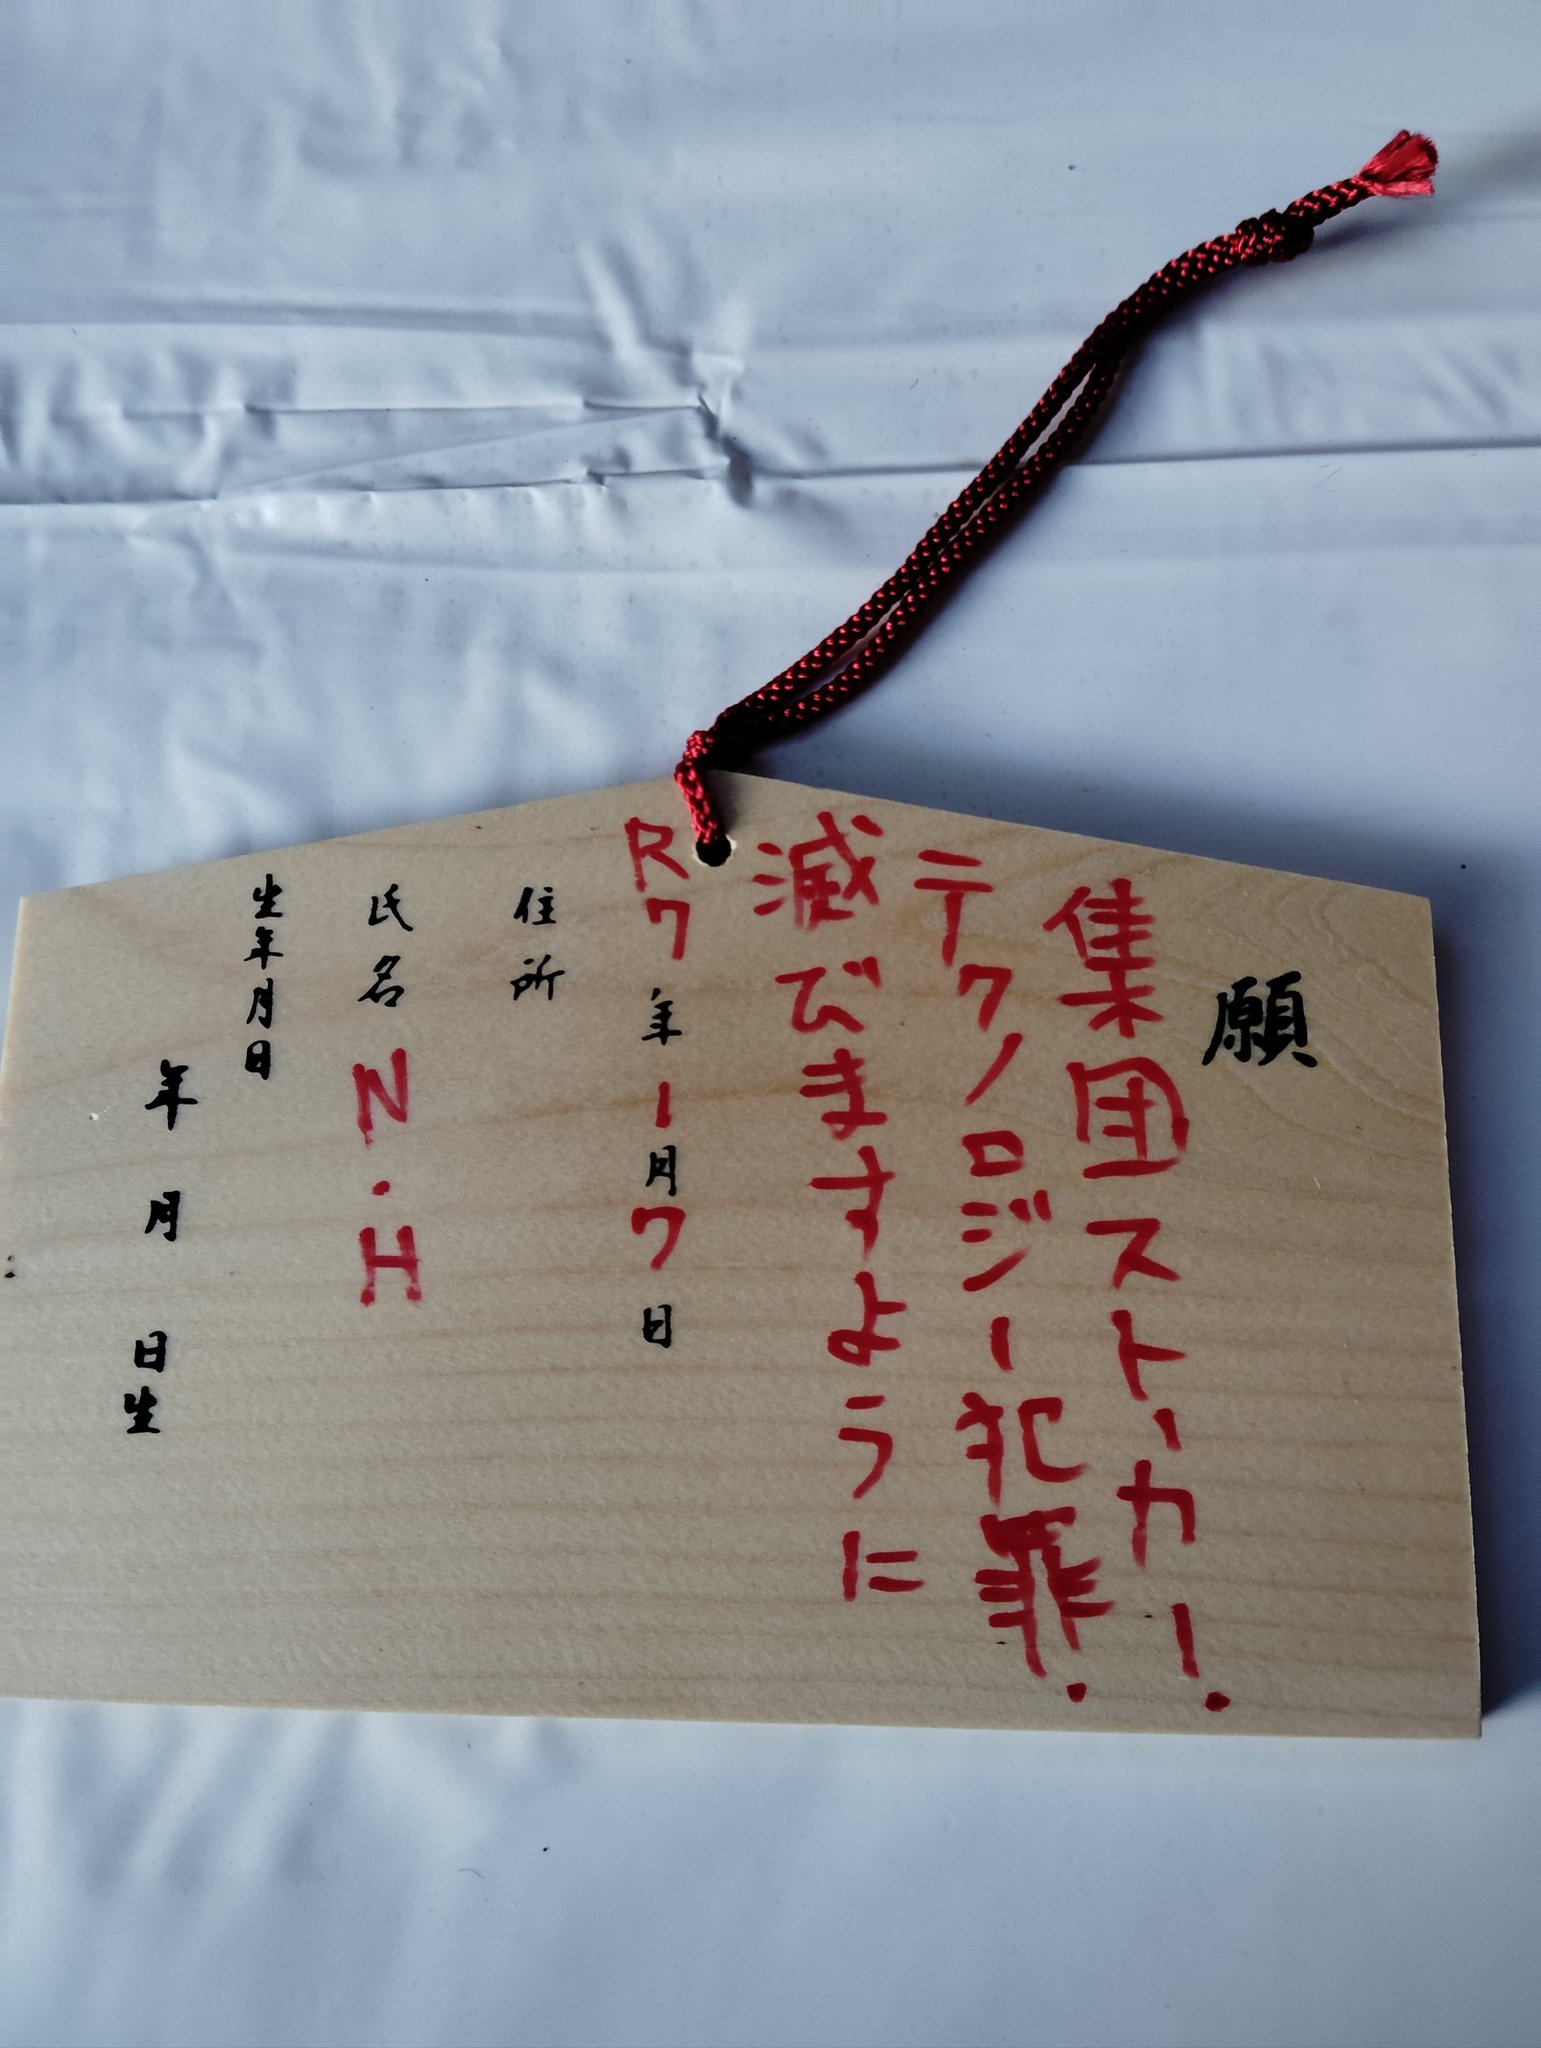 願
集団ストーカー!
テクノロジー犯罪!
滅びますように
R7年1月7日
住所
氏名 N.H
生年月日
年 月 日生